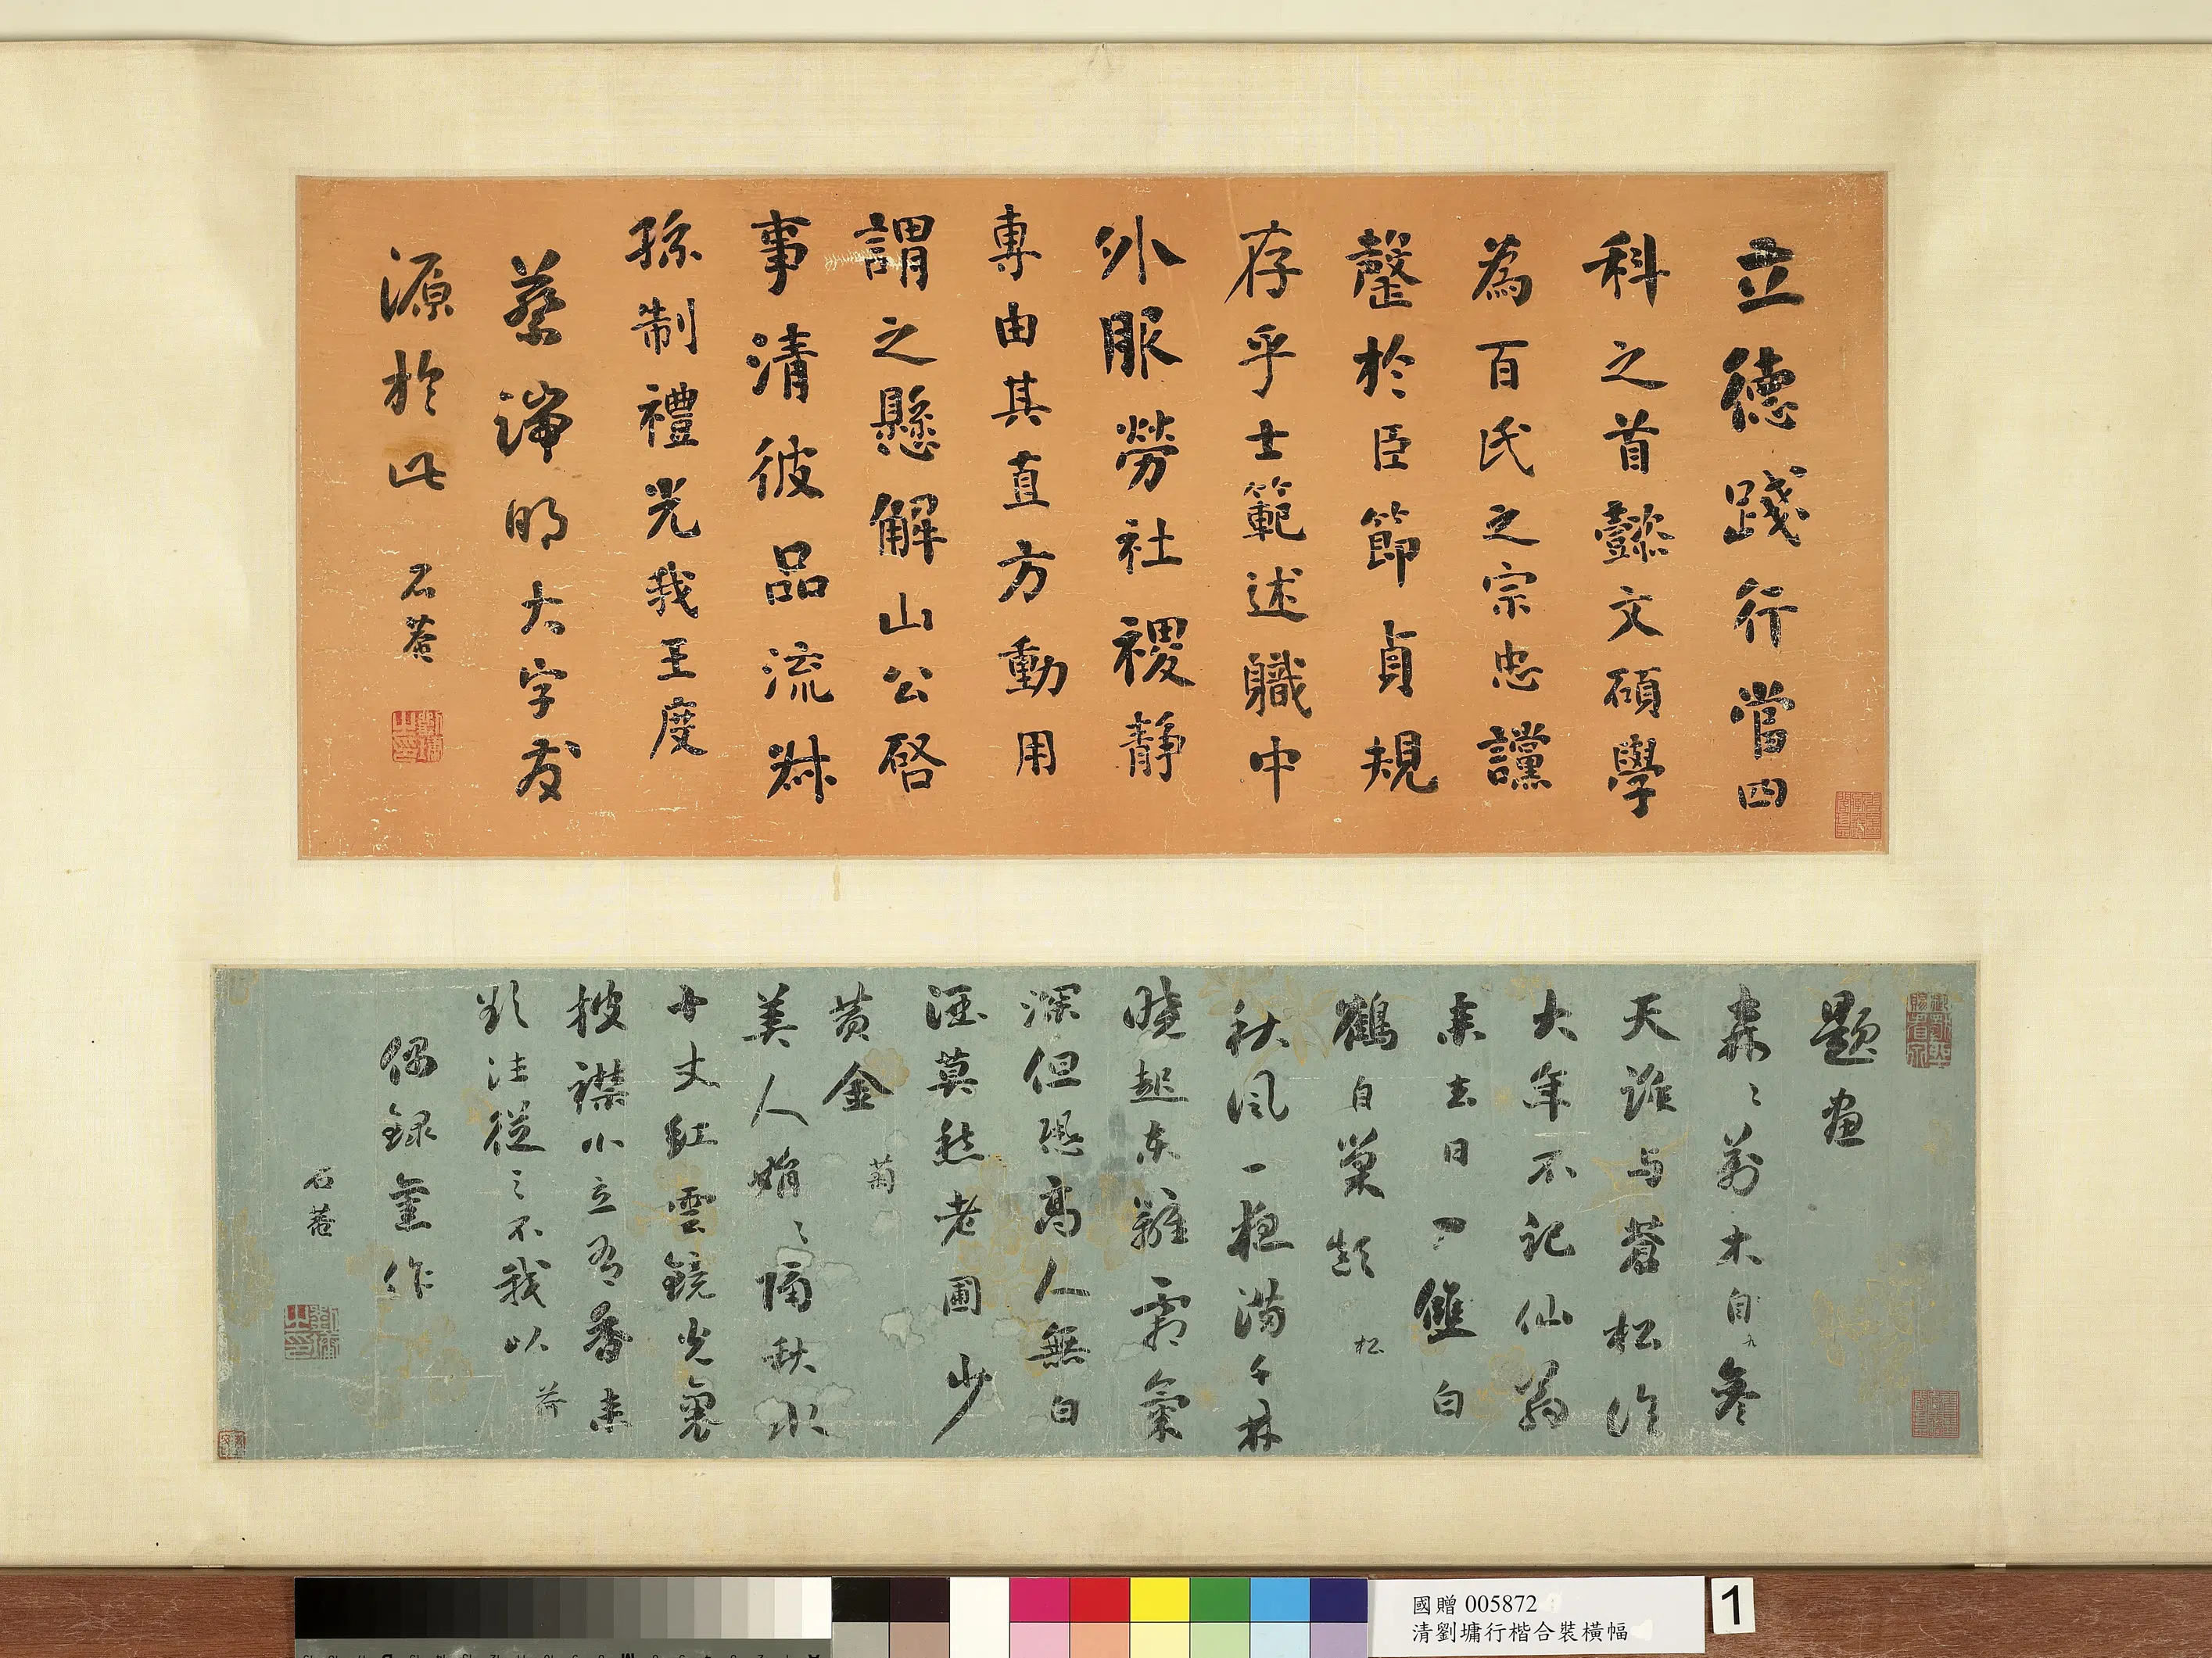 立德踐行當四
科之首懿文碩學
為百氏之宗忠讜
罄於臣節貞規
存乎士範述職中
外服勞社稷靜
專由其直方動用
謂之懸解山公啓
事清彼品流叔
孫制禮光我王度
蔡端明大字友
源於此
石菴
題畫
森〻萬木自參
天誰與蒼松作
大年不記仙翁
來去日一雙白
鶴自巢顛 松
秋風一夜滿千林
曉起東籬霜氣
深但恐高人無白
酒莫愁老圃少
黃金 菊
美人娟〻隔秋水
十丈紅雲鏡光裏
披襟小立為香
從〻不我以 荷
偶錄舊作
石菴
國贈 005872
清劉墉行楷合裝橫幅
1